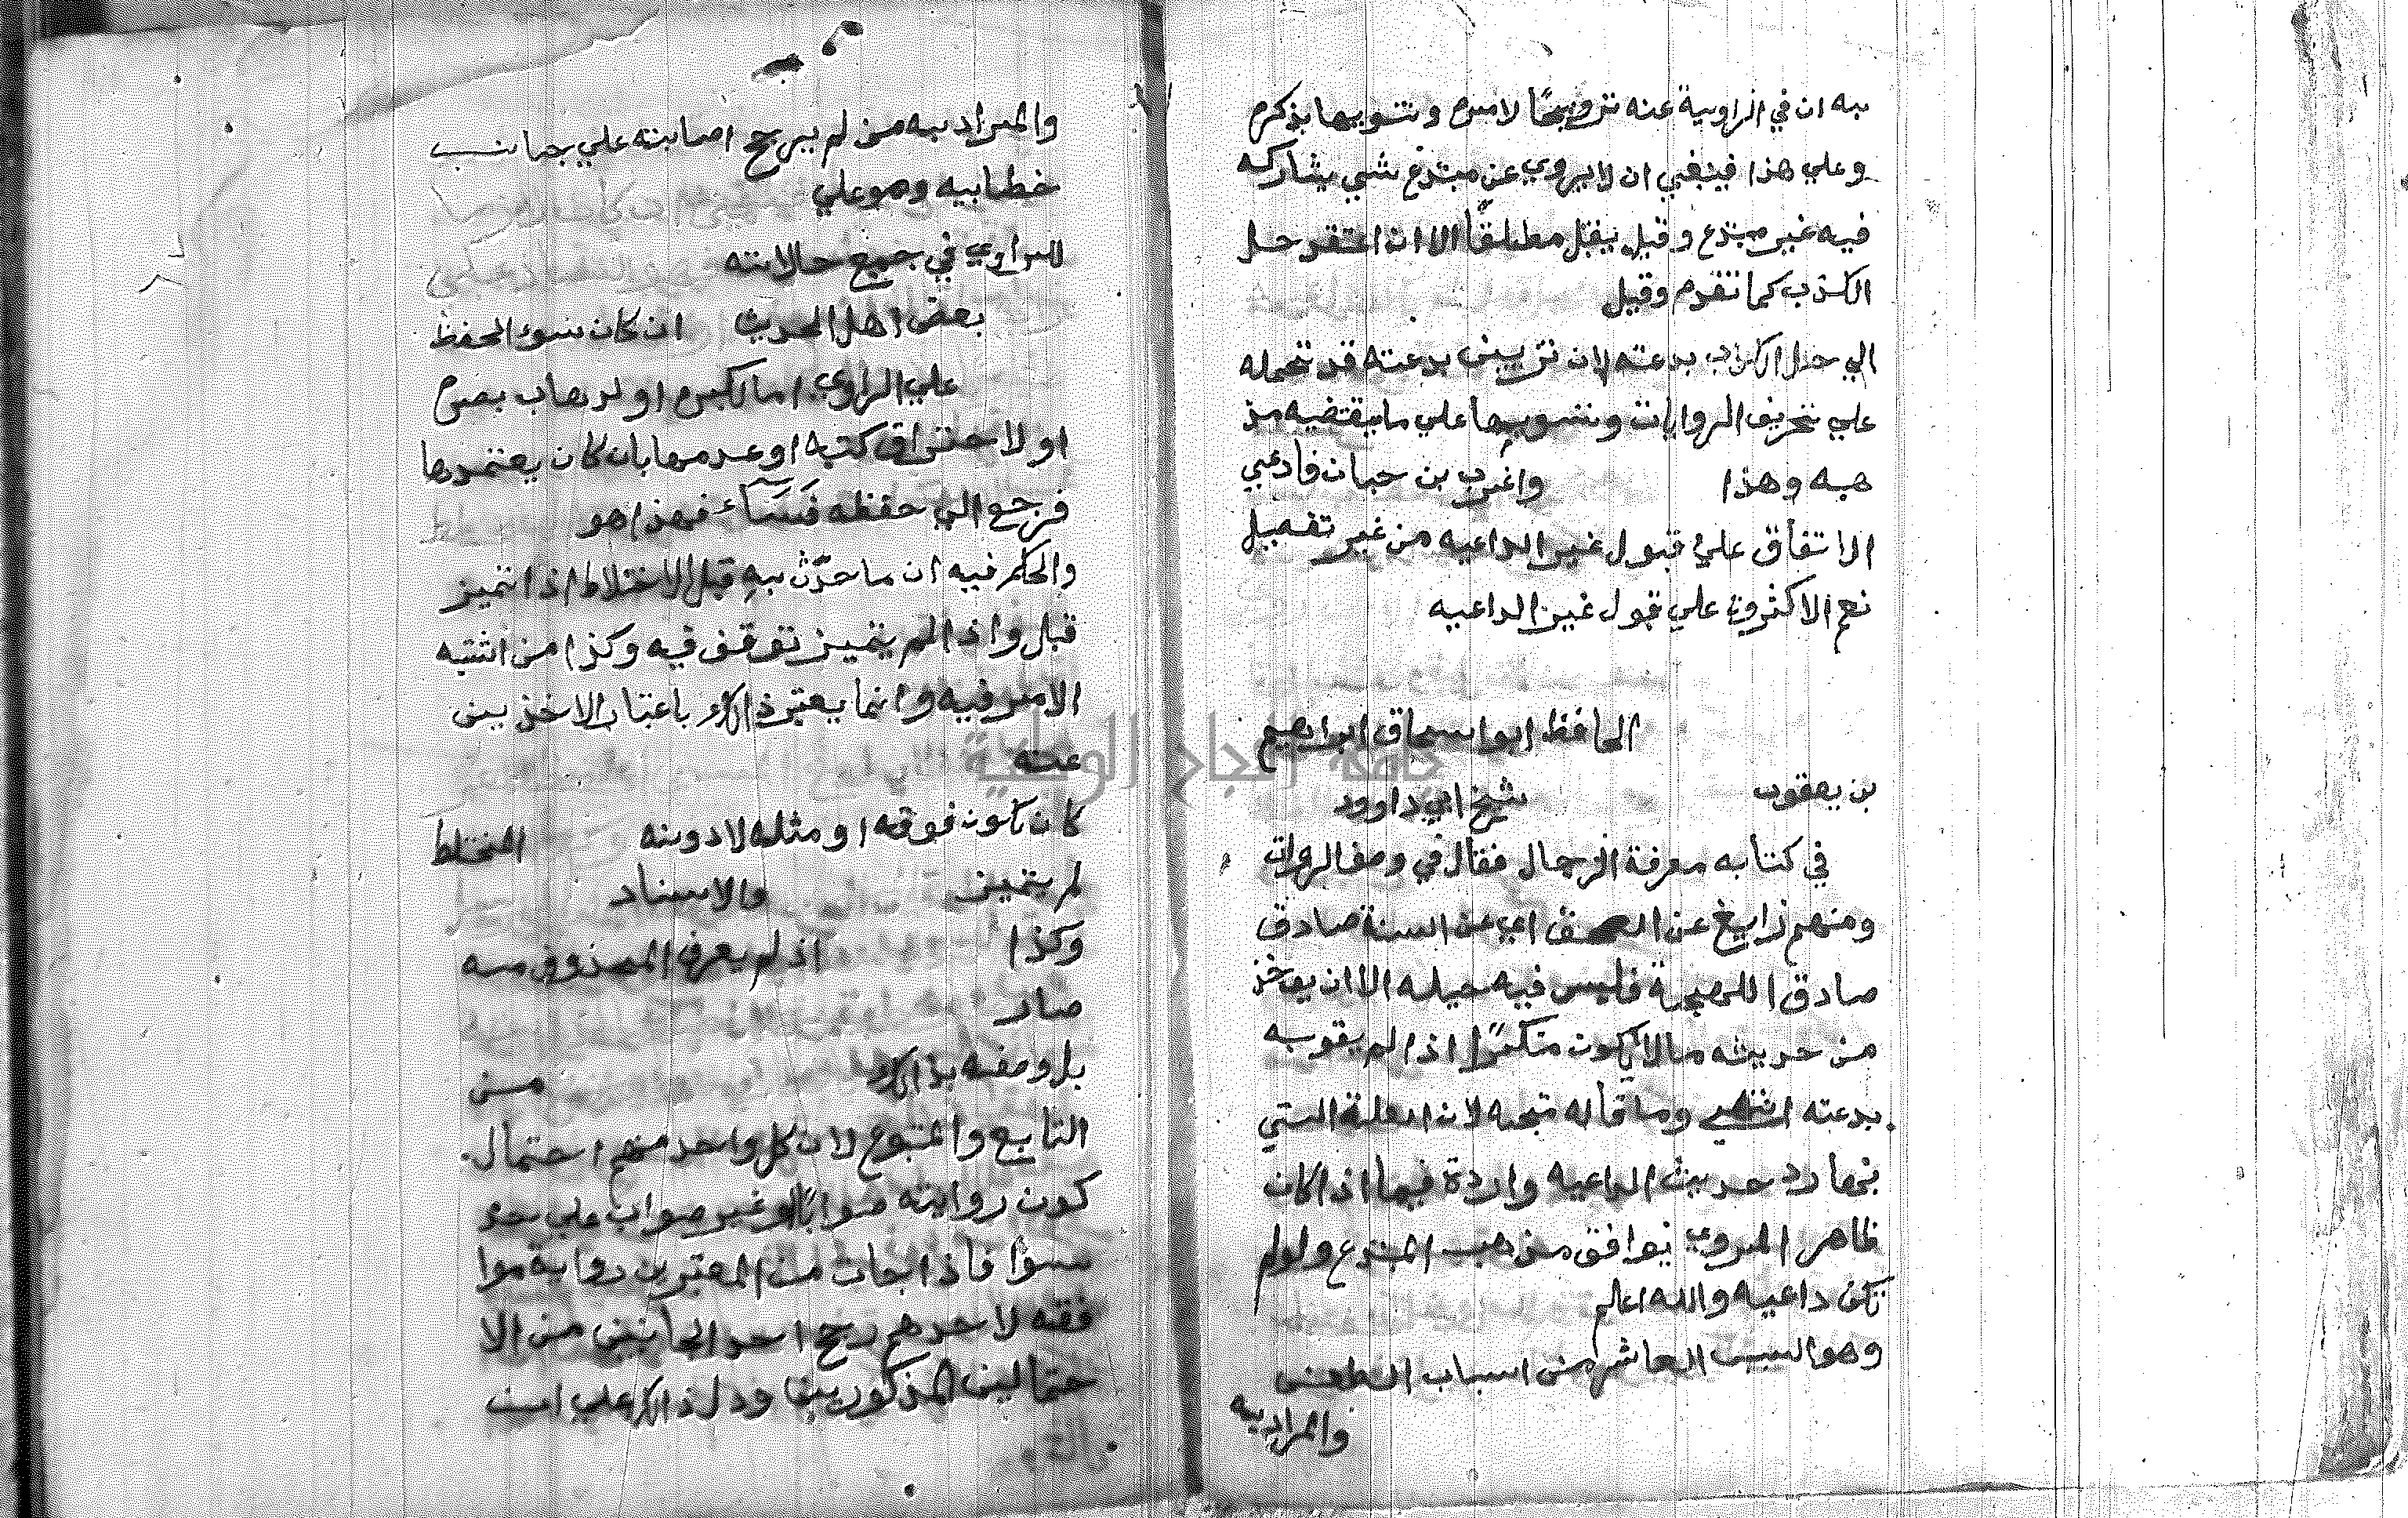 به ان في الرواية عنه ترويجًا لامره وتنويها بذكره
وعلي هذا فينبغي ان لا يروي عن مبتدع شي يشاركه
فيه غير مبتدع وقيل يقبل مطلقًا الا ان اعتقد حل
الكذب كما تقدم وقيل
الي بدعته لان تزيين بدعته قد تحمله
علي تحريف الروايات وتسويتها علي ما يقتضيه مذ
هبه وهذا واغرب بن حبان فادعي
الاتفاق علي قبول غير الداعيه من غير تفصيل
نعم الاكثرون علي قبول غير الداعيه
الحافظ ابو اسحاق ابراهيم
بن يعقوب شيخ ابي داوود
في كتابه معرفة الرجال فقال في وصف الروات
ومنهم زايغ عن الحق اي عن السنة صادق
صادق اللهجة فليس فيه حيله الا ان يوخذ
من حديثه مالا يكون منكرًا اذا لم يقو به
بدعته انتهي وما قاله متجه لان العلة التي
بها رد حديث الداعيه واردة فيما اذا كان
ظاهر المروي يوافق مذهب المبتدع ولو لم
يكن داعيه والله اعلم
وهو السبب العاشر من اسباب الطعن
والمراد به
والمراد به من لم يرجح اصابته علي جانب
خطايه وهو علي
للراوي في جميع حالاته
بعض اهل الحديث ان كان سوء الحفظ
علي الراوي اما لكبره او لذهاب بصره
او لاحتراق كتبه او عدمها بان كان يعتمدها
فرجع الي حفظه فَسَاء فهذا هو
والحكم فيه ان ما حدّث به قبل الاختلاط اذا تميز
قبل واذا لم يتميز توقف فيه وكذا من اشتبه
الامر فيه وانما يعتبر ذالك باعتبار الاخذين
عنه
كان يكون فوقه او مثله لا دونه المختلط
لم يتميز والاسناد
وكذا اذ لم يعرف المحذوف منه
صار
بل وصفه بذالك من
التابع والمتبوع لان كل واحد منهم احتمال
كون روايته صوابًا او غير صواب علي حد
سوا فاذا جات من المعتبرين رواية موا
فقه لاحدهم رجح احد الجانبين من الا
حتمالين المذكورين ودل ذالك علي ان
جامعة النجاح الوطنية